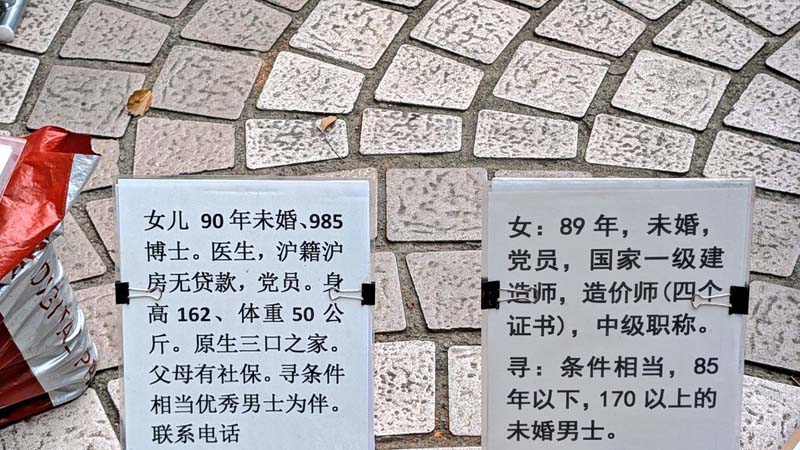 女儿 90年未婚、985
博士。医生，沪籍沪
房无贷款，党员。身
高162、体重50公
斤。原生三口之家。
父母有社保。寻条件
相当优秀男士为伴。
联系电话
女：89年，未婚，
党员，国家一级建
造师，造价师（四个
证书），中级职称。
寻：条件相当，85
年以下，170以上的
未婚男士。